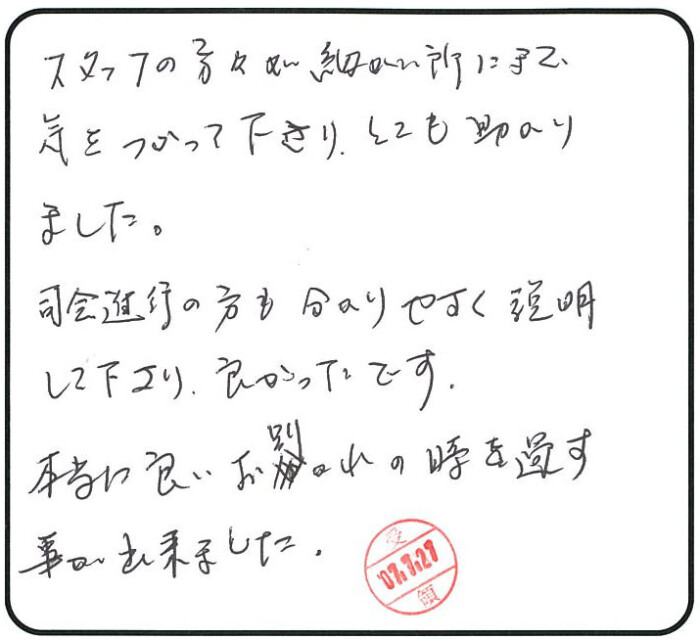 スタッフの方々が細かい所にまで
気をつかって下さり、とても助かり
ました。
司会進行の方も分かりやすく説明
して下さり、良かったです。
本当に良いお別れの時を過す
事が出来ました。
受
07.7.27
領